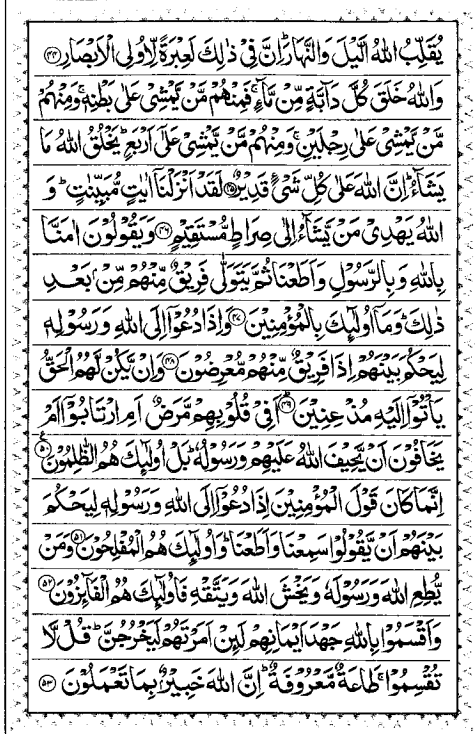 يُقَلِّبُ اللّٰهُ الَّيْلَ وَالنَّهَارَ ؕ اِنَّ فِيْ ذٰلِكَ لَعِبْرَةً لِّاُولِي الْاَبْصَارِ ﴿۴۴﴾
وَاللّٰهُ خَلَقَ كُلَّ دَآبَّةٍ مِّنْ مَّآءٍ ۚ فَمِنْهُمْ مَّنْ يَّمْشِيْ عَلٰى بَطْنِهٖ ۚ وَمِنْهُمْ
مَّنْ يَّمْشِيْ عَلٰى رِجْلَيْنِ ۚ وَمِنْهُمْ مَّنْ يَّمْشِيْ عَلٰٓى اَرْبَعٍ ؕ يَخْلُقُ اللّٰهُ مَا
يَشَآءُ ؕ اِنَّ اللّٰهَ عَلٰى كُلِّ شَيْءٍ قَدِيْرٌ ﴿۴۵﴾ لَقَدْ اَنْزَلْنَآ اٰيٰتٍ مُّبَيِّنٰتٍ ؕ وَ
اللّٰهُ يَهْدِيْ مَنْ يَّشَآءُ اِلٰى صِرَاطٍ مُّسْتَقِيْمٍ ﴿۴۶﴾ وَيَقُوْلُوْنَ اٰمَنَّا
بِاللّٰهِ وَبِالرَّسُوْلِ وَاَطَعْنَا ثُمَّ يَتَوَلّٰى فَرِيْقٌ مِّنْهُمْ مِّنْۢ بَعْدِ
ذٰلِكَ ؕ وَمَآ اُولٰٓئِكَ بِالْمُؤْمِنِيْنَ ﴿۴۷﴾ وَاِذَا دُعُوْٓا اِلَى اللّٰهِ وَرَسُوْلِهٖ
لِيَحْكُمَ بَيْنَهُمْ اِذَا فَرِيْقٌ مِّنْهُمْ مُّعْرِضُوْنَ ﴿۴۸﴾ وَاِنْ يَّكُنْ لَّهُمُ الْحَقُّ
يَاْتُوْٓا اِلَيْهِ مُذْعِنِيْنَ ﴿۴۹﴾ اَفِيْ قُلُوْبِهِمْ مَّرَضٌ اَمِ ارْتَابُوْٓا اَمْ
يَخَافُوْنَ اَنْ يَّحِيْفَ اللّٰهُ عَلَيْهِمْ وَرَسُوْلُهٗ ؕ بَلْ اُولٰٓئِكَ هُمُ الظّٰلِمُوْنَ ﴿۵۰﴾ ع
اِنَّمَا كَانَ قَوْلَ الْمُؤْمِنِيْنَ اِذَا دُعُوْٓا اِلَى اللّٰهِ وَرَسُوْلِهٖ لِيَحْكُمَ
بَيْنَهُمْ اَنْ يَّقُوْلُوْا سَمِعْنَا وَاَطَعْنَا ؕ وَاُولٰٓئِكَ هُمُ الْمُفْلِحُوْنَ ﴿۵۱﴾ وَمَنْ
يُّطِعِ اللّٰهَ وَرَسُوْلَهٗ وَيَخْشَ اللّٰهَ وَيَتَّقْهِ فَاُولٰٓئِكَ هُمُ الْفَآئِزُوْنَ ﴿۵۲﴾
وَاَقْسَمُوْا بِاللّٰهِ جَهْدَ اَيْمَانِهِمْ لَئِنْ اَمَرْتَهُمْ لَيَخْرُجُنَّ ؕ قُلْ لَّا
تُقْسِمُوْا ۚ طَاعَةٌ مَّعْرُوْفَةٌ ؕ اِنَّ اللّٰهَ خَبِيْرٌۢ بِمَا تَعْمَلُوْنَ ﴿۵۳﴾